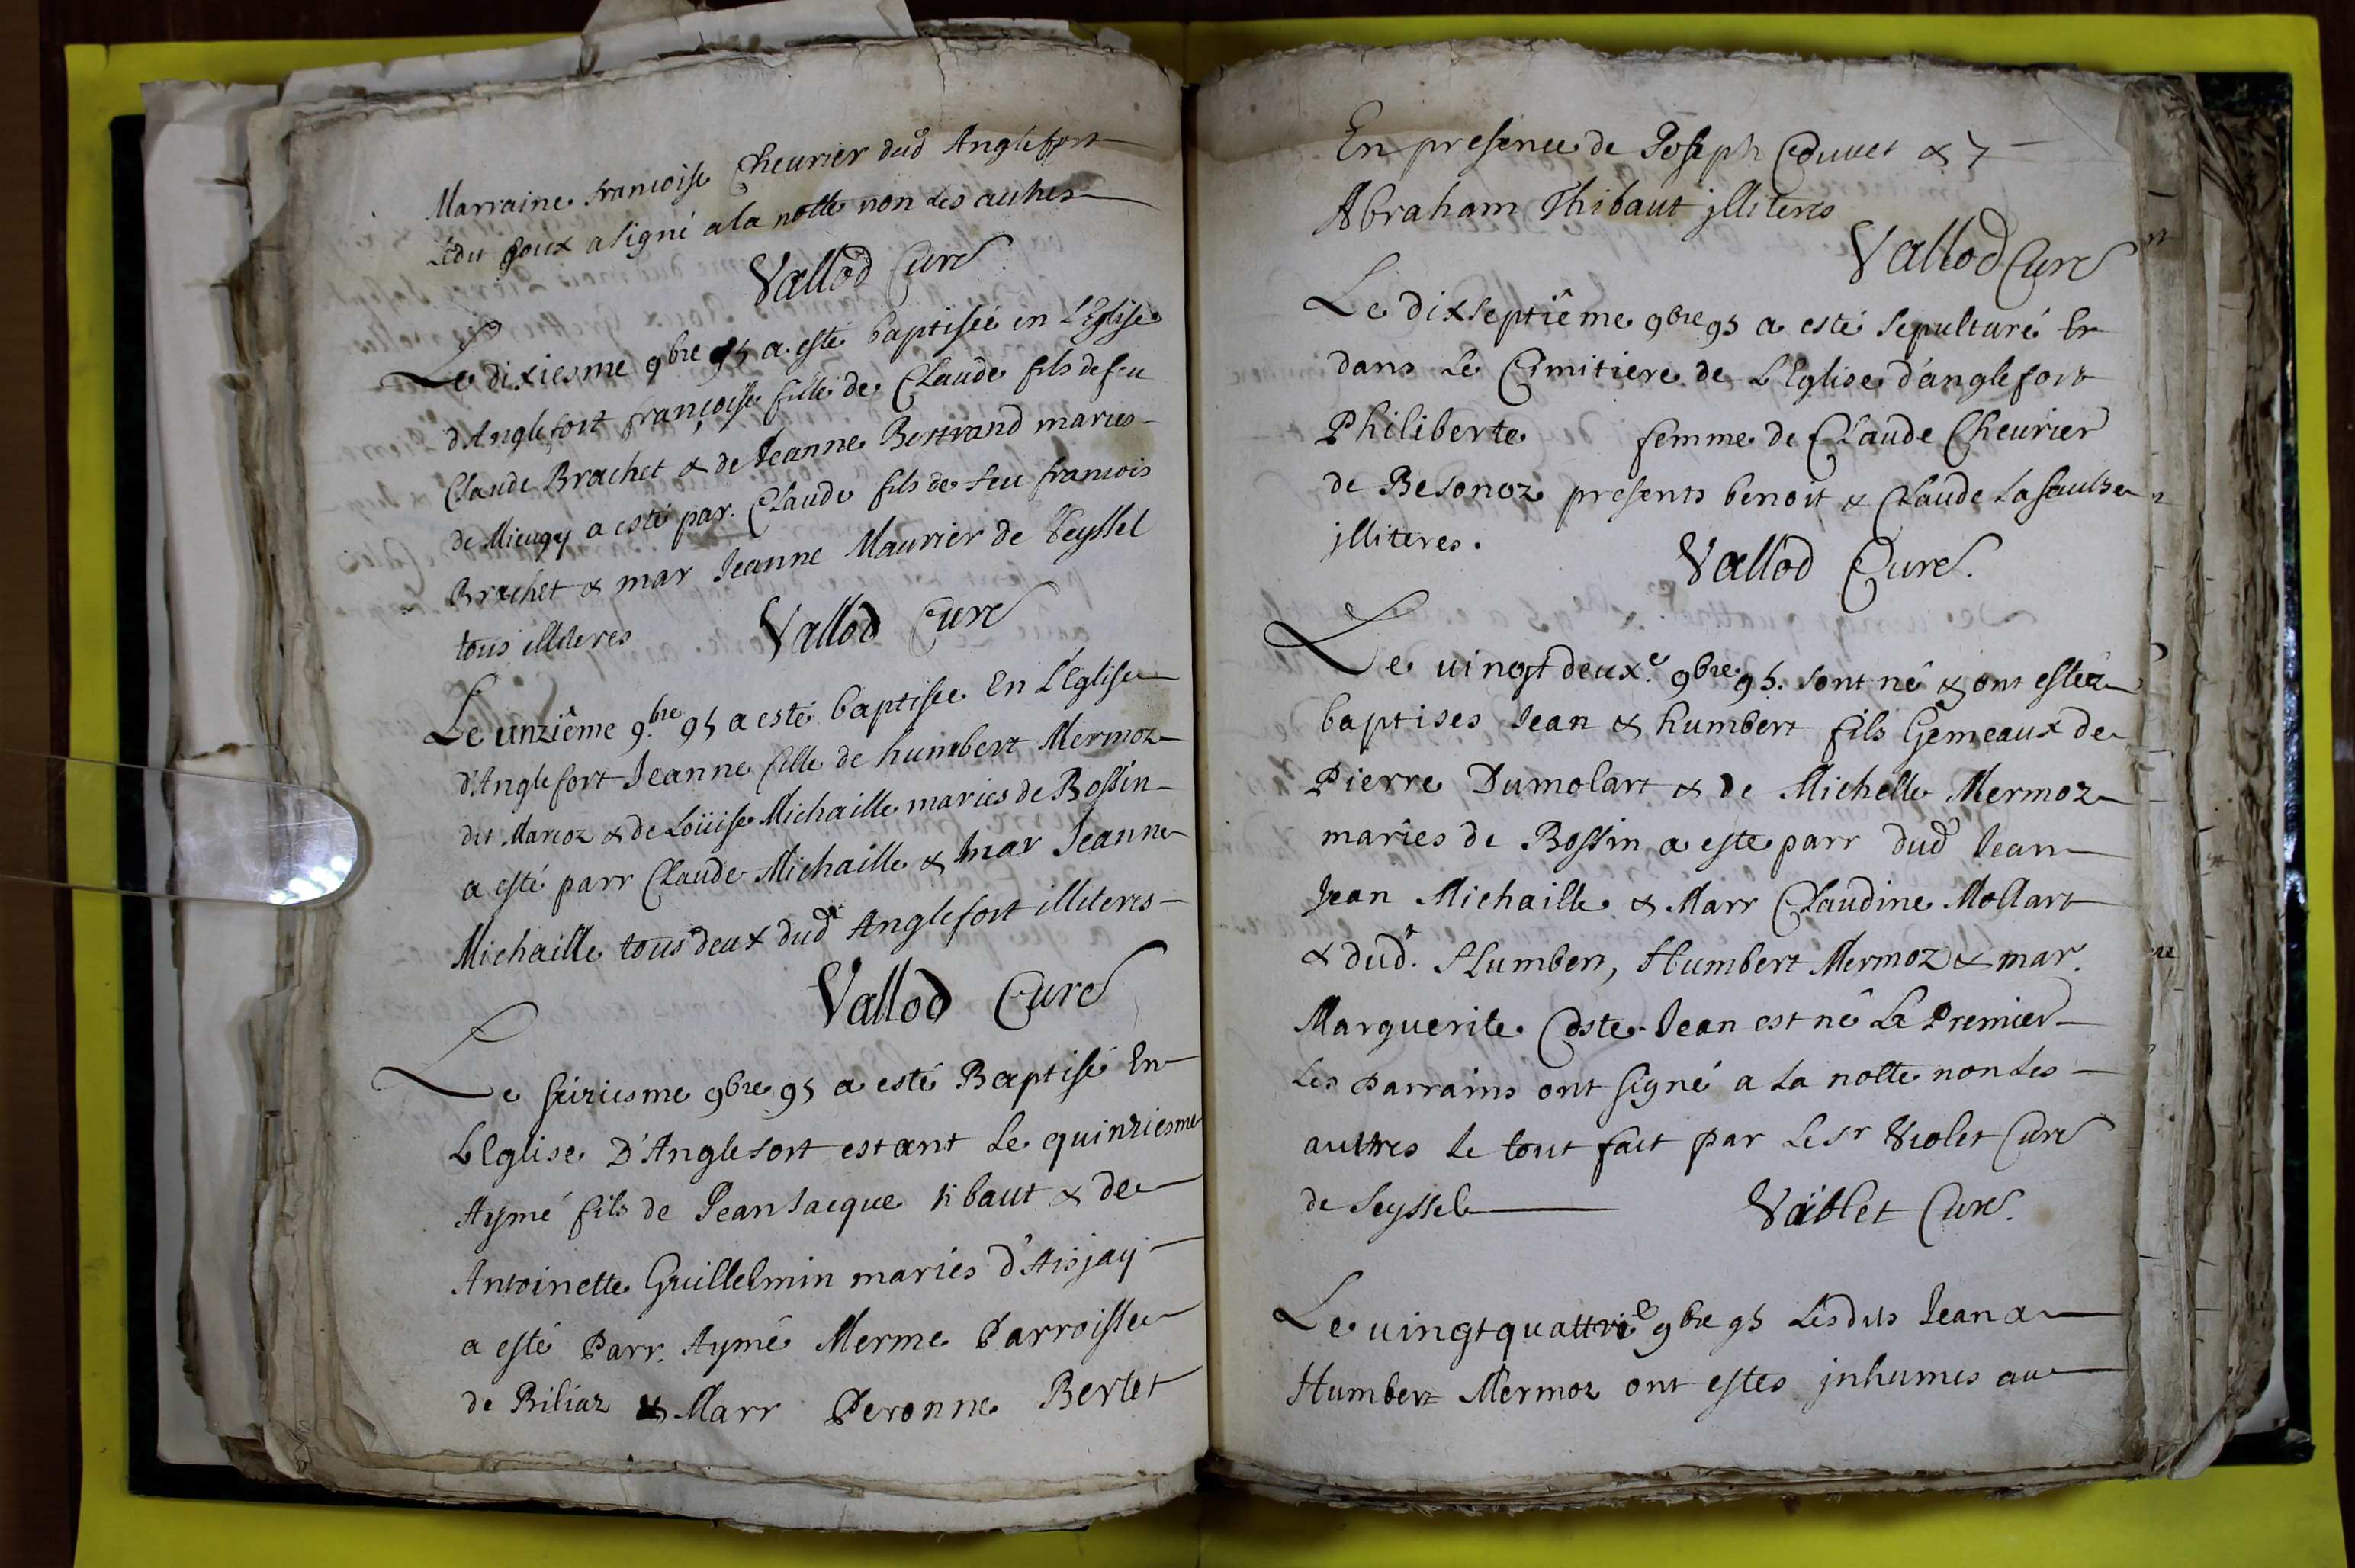 Marraine francoise Cheurier dud Anglefort
Ledit Roux a signé a la notte non les autres
Vallod Curé
Le dixiesme 9bre 95 a esté baptiseé en L'Eglise
d'Anglefort françoise fille de Claude fils de feu
Claude Brachet & de Jeanne Bertrand maries
de Mieugy a esté par. Claude fils de feu francois
Brachet & mar Jeanne Maurier de Seyssel
tous illiteres Vallod Curé
Le unziême 9.bre 95 a esté baptisee En L'Eglise
d'Anglefort Jeanne fille de humbert Mermoz
dit Marcoz & de Loüise Michaille maries de Bossin
a esté parr Claude Michaille & mar Jeanne
Michaille tous deux dud Anglefort illiteres
Vallod Curé
Le seiziesme 9bre 95 a esté Baptisé En
L'Eglise D'Anglefort estant Le quinziesme
Aymé fils de Jean Jacque tibaut & de
Antoinette Guillelmin mariés
a esté Parr. Aymé Merme Parroisse
de Biliaz & Marr Peronne Berlet
En presence de Joseph Couuet &
Abraham Thibaut jlliteres
Vallod Curé
Le dixseptiême 9bre 95 a esté sepulturé En
dans Le Cimitiere de L'Eglise d'anglefort
Philiberte femme de Claude Cheurier
de Besonoz presents benoit & Claude
jlliteres. Vallod Curé.
Le uingt deux.e 9bre 95. sont né & ont estéz
baptises Jean & humbert fils Gemeaux de
Pierre Dumolart & de Michelle Mermoz
maries de Bossin a este parr dud Jean
Jean Michaille & Marr Claudine Mollart
& dud. Humbert, Humbert Mermoz & mar.
Marguerite Coste. Jean est né Le Premier
Les Parrains ont signé a la notte non Les
autres le tout fait par Le Sr Violet Curé
de Seyssel Violet Curé.
Le uingtquattrie 9bre 95 Lesdits Jean &
Humbert Mermoz ont estes jnhumes au